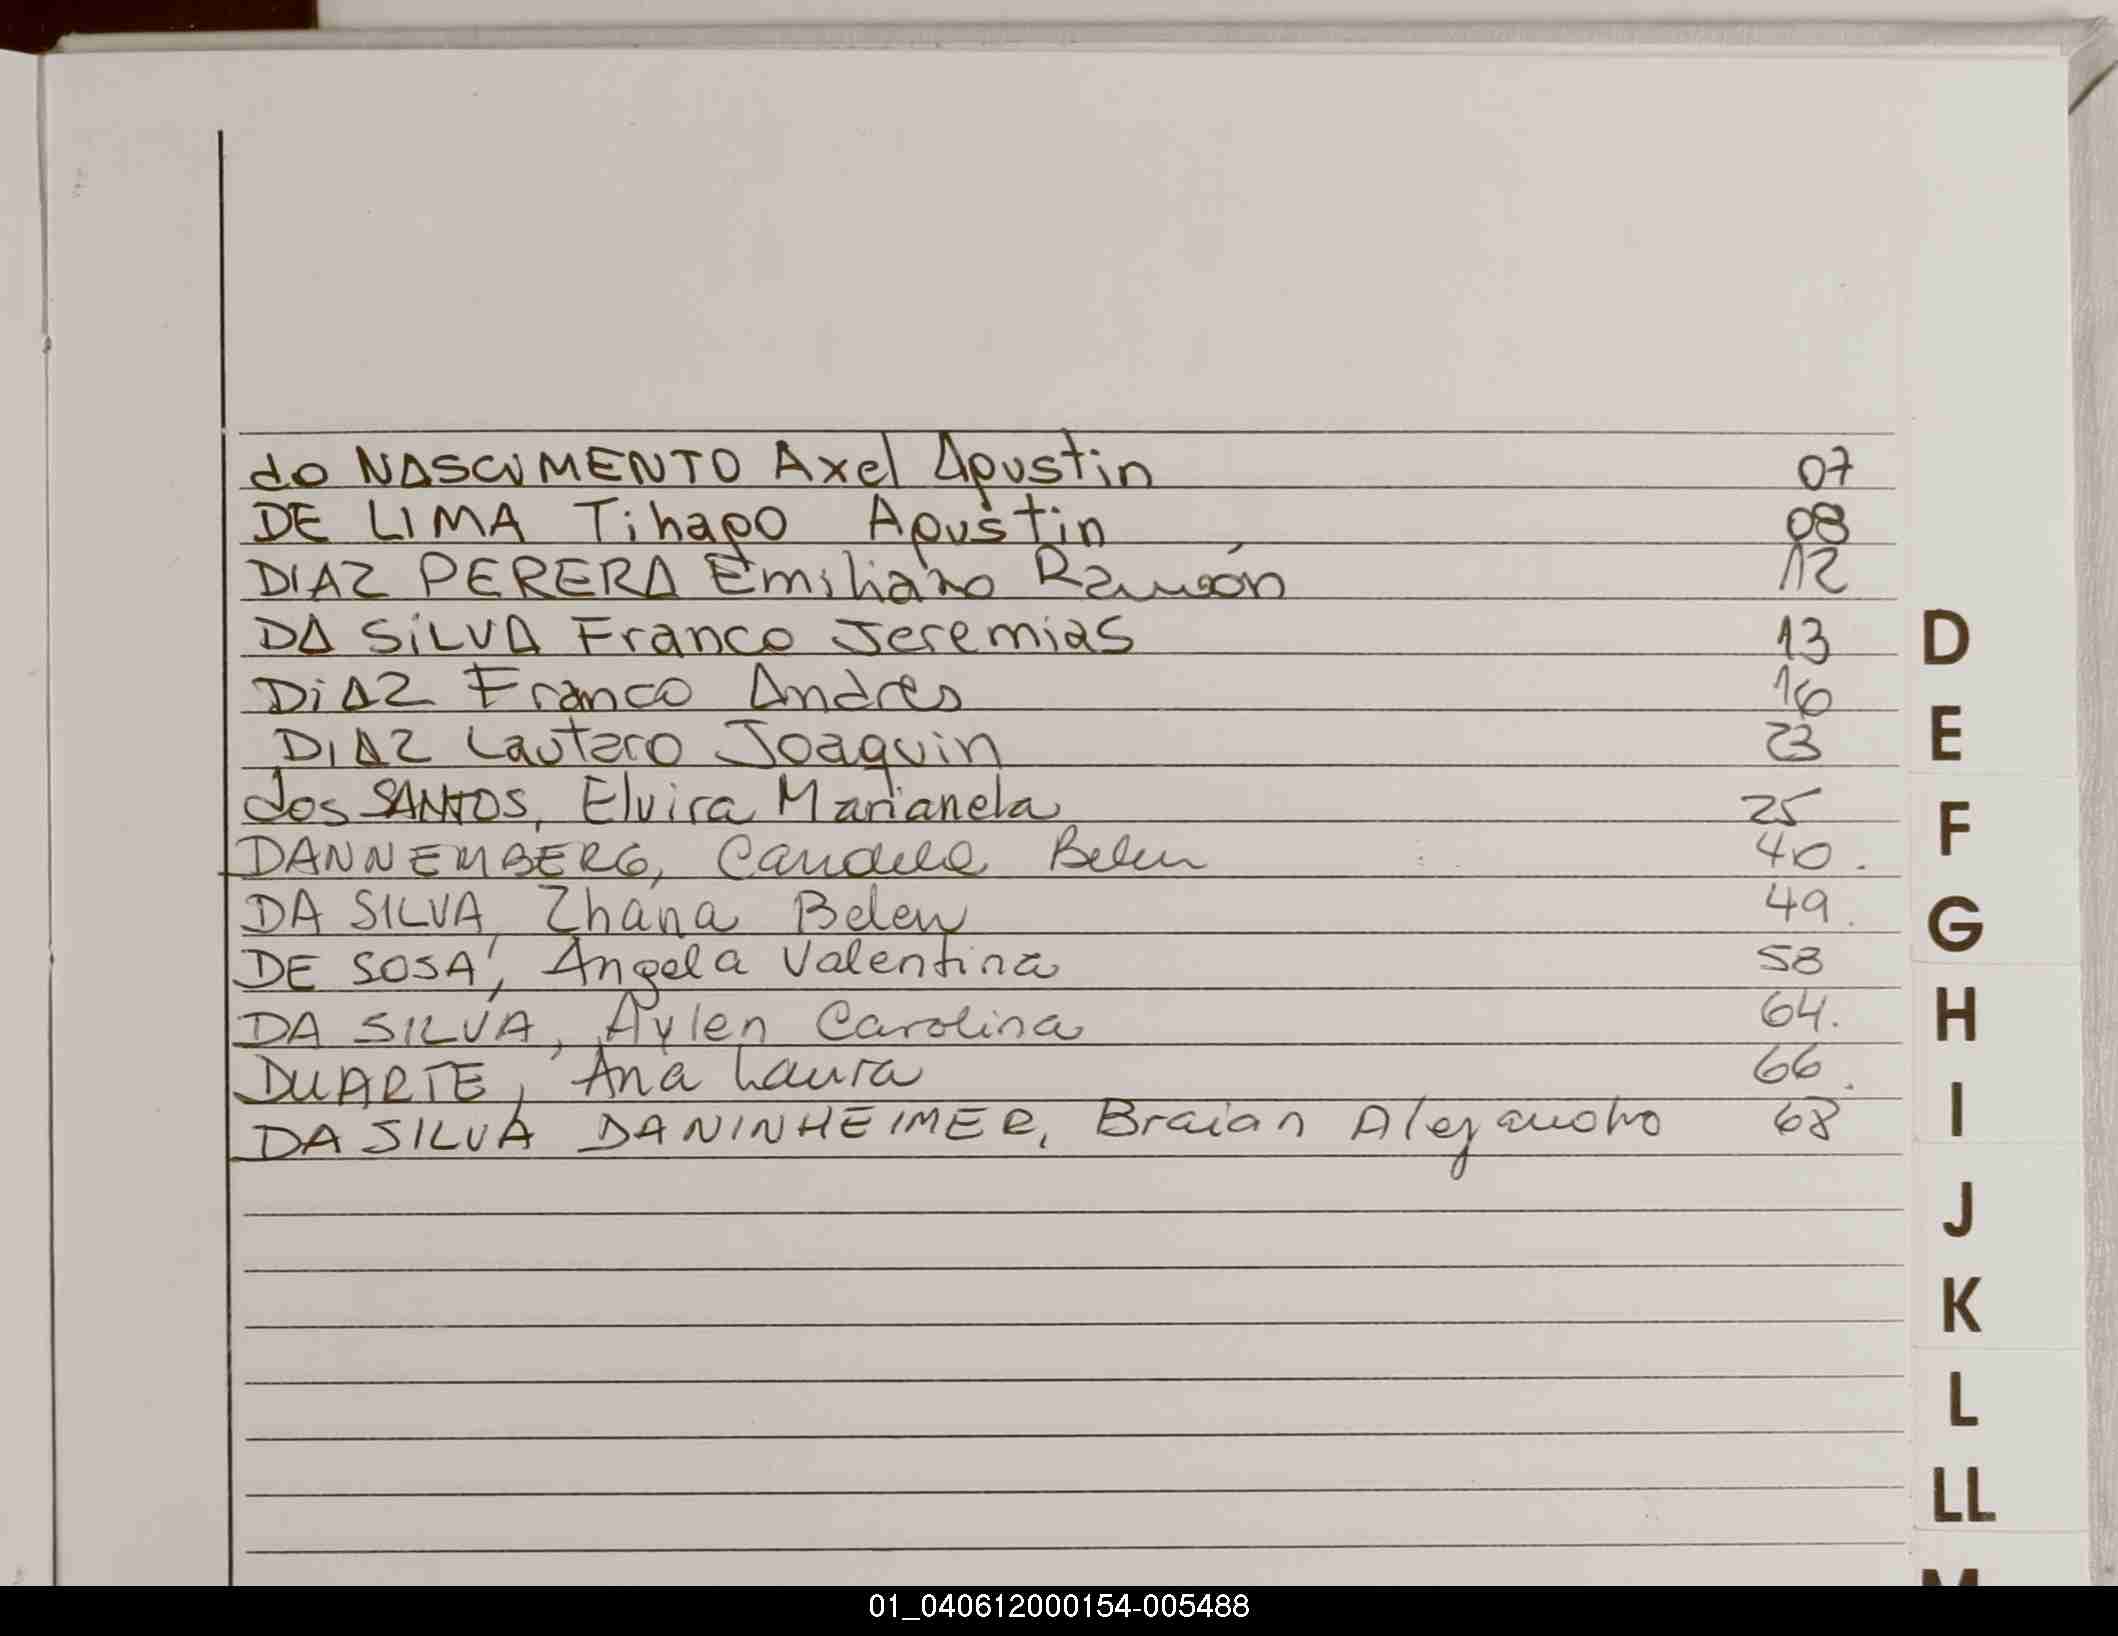 do NASCIMENTO Axel Agustin 07
DE LIMA Tihago Agustin 08
DIAZ PERERA Emiliano Ramón 12
DA SILVA Franco Jeremias 13
DIAZ Franco Andres 16
DIAZ Lautaro Joaquin 23
dos SANTOS, Elvira Marianela 25
DANNEMBERG, Candela Belen 40.
DA SILVA, Zhana Belen 49.
DE SOSA, Angela Valentina 58
DA SILVA, Aylen Carolina 64.
DUARTE, Ana Laura 66.
DA SILVA DANINHEIMER, Braian Alejandro 68
D
E
F
G
H
I
J
K
L
LL
M
01_040612000154-005488